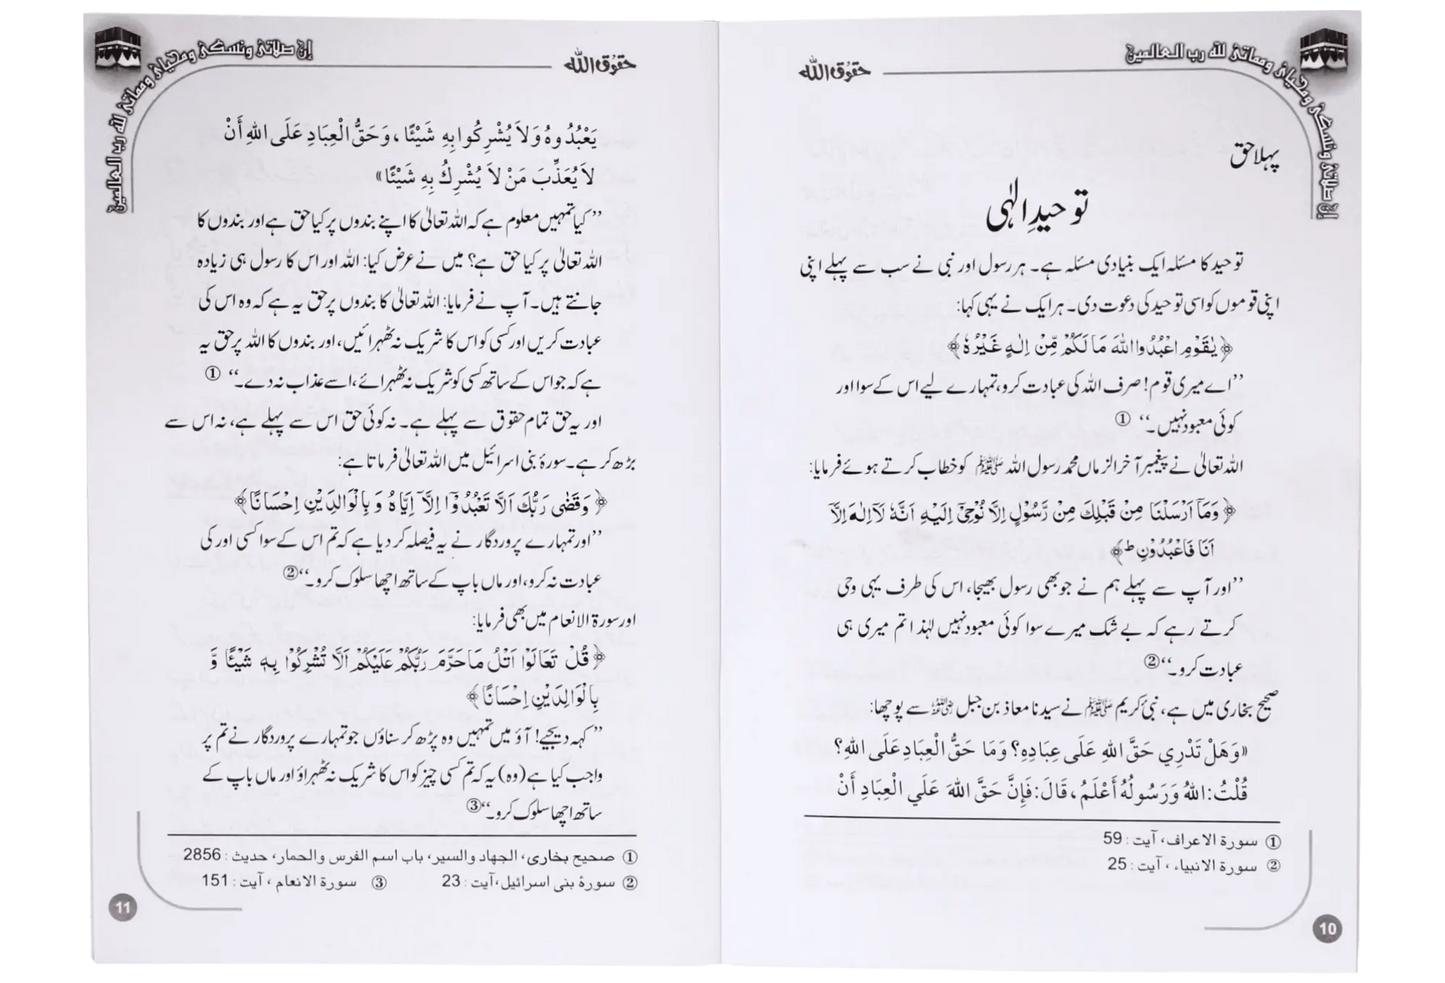 حقوق اللہ
إن صلاتي ونسكي ومحياي ومماتي لله رب العالمين
پہلا حق
توحیدِ الٰہی
توحید کا مسئلہ ایک بنیادی مسئلہ ہے۔ ہر رسول اور نبی نے سب سے پہلے اپنی
اپنی قوموں کو اسی توحید کی دعوت دی۔ ہر ایک نے یہی کہا:
﴿يٰقَوْمِ اعْبُدُوا اللّٰهَ مَا لَكُمْ مِّنْ اِلٰهٍ غَيْرُهٗ﴾
’’اے میری قوم! صرف اللہ کی عبادت کرو، تمہارے لیے اس کے سوا اور
کوئی معبود نہیں۔‘‘ ①
اللہ تعالیٰ نے پیغمبر آخر الزماں محمد رسول اللہ ﷺ کو خطاب کرتے ہوئے فرمایا:
﴿وَمَآ اَرْسَلْنَا مِنْ قَبْلِكَ مِنْ رَّسُوْلٍ اِلَّا نُوْحِيْٓ اِلَيْهِ اَنَّهٗ لَآ اِلٰهَ اِلَّآ
اَنَا فَاعْبُدُوْنِ ط﴾
’’اور آپ سے پہلے ہم نے جو بھی رسول بھیجا، اس کی طرف یہی وحی
کرتے رہے کہ بے شک میرے سوا کوئی معبود نہیں لہٰذا تم میری ہی
عبادت کرو۔‘‘②
صحیح بخاری میں ہے، نبی کریم ﷺ نے سیدنا معاذ بن جبل رضی اللہ عنہ سے پوچھا:
«وَهَلْ تَدْرِي حَقَّ اللهِ عَلَى عِبَادِهِ؟ وَمَا حَقُّ الْعِبَادِ عَلَى اللهِ؟
قُلْتُ: اللهُ وَرَسُولُهُ أَعْلَمُ، قَالَ: فَإِنَّ حَقَّ اللهَ عَلَي الْعِبَادِ أَنْ
① سورة الاعراف، آیت : 59
② سورة الانبیاء ، آیت : 25
10
إن صلاتي ونسكي ومحياي ومماتي لله رب العالمين
حقوق اللہ
يَعْبُدُوهُ وَلاَ يُشْرِكُوا بِهِ شَيْئًا، وَحَقُّ الْعِبَادِ عَلَى اللهِ أَنْ
لاَ يُعَذِّبَ مَنْ لاَ يُشْرِكُ بِهِ شَيْئًا»
’’کیا تمہیں معلوم ہے کہ اللہ تعالیٰ کا اپنے بندوں پر کیا حق ہے اور بندوں کا
اللہ تعالیٰ پر کیا حق ہے؟ میں نے عرض کیا: اللہ اور اس کا رسول ہی زیادہ
جانتے ہیں۔ آپ نے فرمایا: اللہ تعالیٰ کا بندوں پر حق یہ ہے کہ وہ اس کی
عبادت کریں اور کسی کو اس کا شریک نہ ٹھہرائیں، اور بندوں کا اللہ پر حق یہ
ہے کہ جو اس کے ساتھ کسی کو شریک نہ ٹھہرائے، اسے عذاب نہ دے۔‘‘ ①
اور یہ حق تمام حقوق سے پہلے ہے۔ نہ کوئی حق اس سے پہلے ہے، نہ اس سے
بڑھ کر ہے۔ سورۂ بنی اسرائیل میں اللہ تعالیٰ فرماتا ہے:
﴿وَقَضٰى رَبُّكَ اَلَّا تَعْبُدُوْٓا اِلَّآ اِيَّاهُ وَ بِالْوَالِدَيْنِ اِحْسَانًا﴾
’’اور تمہارے پروردگار نے یہ فیصلہ کر دیا ہے کہ تم اس کے سوا کسی اور کی
عبادت نہ کرو، اور ماں باپ کے ساتھ اچھا سلوک کرو۔‘‘②
اور سورۃ الانعام میں بھی فرمایا:
﴿قُلْ تَعَالَوْا اَتْلُ مَا حَرَّمَ رَبُّكُمْ عَلَيْكُمْ اَلَّا تُشْرِكُوْا بِهٖ شَيْئًا وَّ
بِالْوَالِدَيْنِ اِحْسَانًا﴾
’’کہہ دیجیے! آؤ میں تمہیں وہ پڑھ کر سناؤں جو تمہارے پروردگار نے تم پر
واجب کیا ہے (وہ) یہ کہ تم کسی چیز کو اس کا شریک نہ ٹھہراؤ اور ماں باپ کے
ساتھ اچھا سلوک کرو۔‘‘③
① صحیح بخاری، الجهاد والسیر، باب اسم الفرس والحمار، حدیث : 2856
② سورۂ بنی اسرائیل، آیت : 23 ③ سورة الانعام ، آیت : 151
11